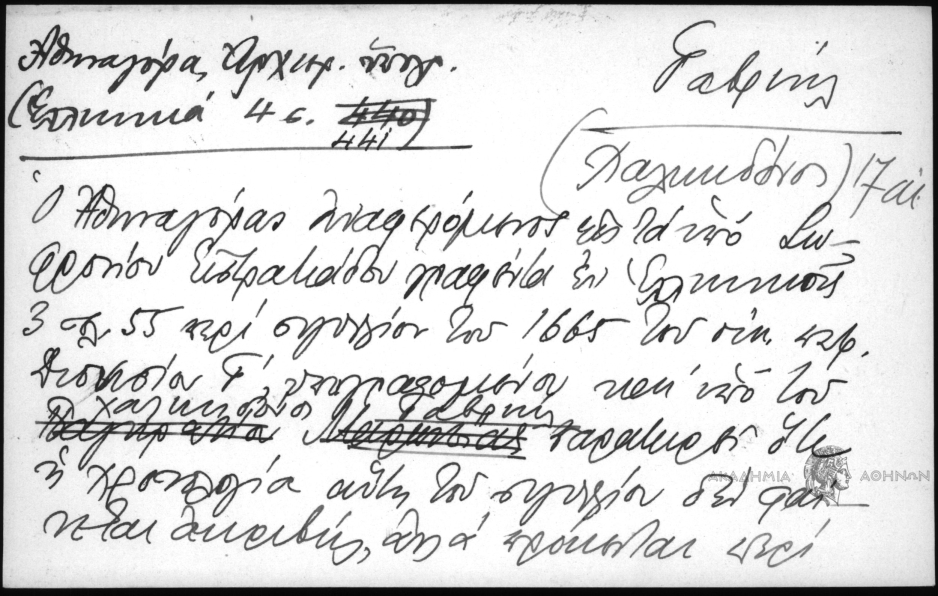 Ἀθηναγόρα, Ἀρχιερ. ὑπογρ.
(Ἑλληνικά 4 σ. 440)
441
Γαβριήλ
(Χαλκηδόνος) 17 αἰ.
Ὁ Ἀθηναγόρας ἀναφερόμενος εἰς τὰ ὑπό Σω-
φρονίου Εὐστρατιάδου γραφέντα ἐν Ἑλληνικοῖς
3 σελ. 55 περί σιγιλλίου τοῦ 1665 τοῦ οἰκ. πατρ.
Διονυσίου Γ΄, ὑπογραφομένου καί ὑπό τοῦ
Χαλκηδόνος Γαβριήλ
παρατηρεῖ ὅτι
ἡ χρονολογία αὕτη τοῦ σιγιλλίου δέν φαί-
νεται ἀκριβής, ἀλλά πρόκειται περί
ΑΚΑΔΗΜΙΑ ΑΘΗΝΩΝ